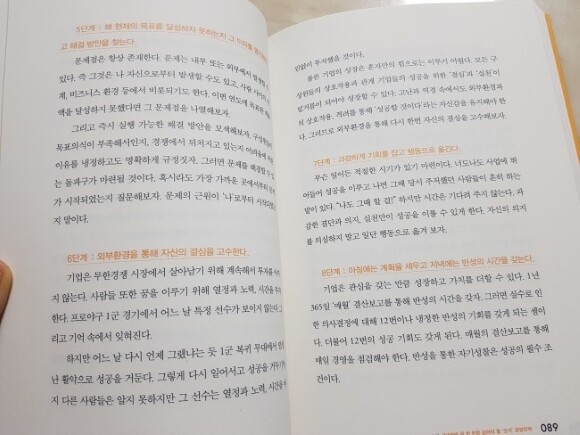 5단계 : 왜 현재의 목표를 달성하지 못하는지 그 이유를
고 해결 방안을 찾는다.
문제점은 항상 존재한다. 문제는 내부 또는 외부에서 발생할 수
있다. 즉 그것은 나 자신으로부터 발생할 수도 있고, 사람
계, 비즈니스 환경 등에서 비롯되기도 한다. 이번 연도에 목표한
액을 달성하지 못했다면 그 문제점을 나열해보자.
그리고 즉시 실행 가능한 해결 방안을 모색해보자.
목표의식이 부족해서인지, 경쟁에서 뒤처지고 있는지
이유를 냉정하고도 명확하게 규정짓자. 그러면 문제를 해결할 수
는 돌파구가 마련될 것이다. 혹시라도 가장 가까운 곳에서부터
가 시작되었는지 질문해보자. 문제의 근원이 '나'로부터 시작되었
지 말이다.
6단계 : 외부환경을 통해 자신의 결심을 고수한다.
기업은 무한경쟁 시장에서 살아남기 위해 계속해서 투자를
지 않는다. 사람들 또한 꿈을 이루기 위해 열정과 노력, 시간을
한다. 프로야구 1군 경기에서 어느 날 특정 선수가 보이지 않는다
리고 기억 속에서 잊혀진다.
하지만 어느 날 다시 언제 그랬냐는 듯 1군 복귀 무대에서
난 활약으로 성공을 거둔다. 그렇게 다시 일어서고 성공을 거두기
지 다른 사람들은 알지 못하지만 그 선수는 열정과 노력, 시간을
없이 투자했을 것이다.
물론 기업의 성장은 혼자만의 힘으로는 이루기 어렵다. 모든 구
성원들의 상호작용과 관계 기업들의 성공을 위한 '결심'과 '실천'이
밑거름이 되어야 성장할 수 있다. 고난과 역경 속에서도 외부환경
의 상호작용, 격려를 통해 '성공할 것이다'라는 자신감을 유지해야 한
다. 그러므로 외부환경을 통해 다시 한번 자신의 결심을 고수해보자.
7단계 : 과감하게 기회를 잡고 행동으로 옮긴다.
무슨 일이든 적절한 시기가 있기 마련이다. 너도나도 사업에 뛰
어들어 성공을 이루고 나면 그때 당시 주저했던 사람들이 흔히 하는
말이 있다. "나도 그때 할 걸!" 하지만 시간은 기다려 주지 않는다. 과
감한 결단과 의지, 실천만이 성공을 이룰 수 있게 한다. 자신의 의지
를 의심하지 말고 일단 행동으로 옮겨 보자.
8단계 : 아침에는 계획을 세우고 저녁에는 반성의 시간을 갖는다.
기업은 관심을 갖는 만큼 성장하고 가치를 더할 수 있다. 1년
365일 '매월' 결산보고를 통해 반성의 시간을 갖자. 그러면 실수로 인
한 의사결정에 대해 12번이나 냉정한 반성의 기회를 갖게 되는 셈이
다. 더불어 12번의 성공 기회도 갖게 된다. 매월의 결산보고를 통해
매일 경영을 점검해야 한다. 반성을 통한 자기성찰은 성공의 필수 조
건이다.
089